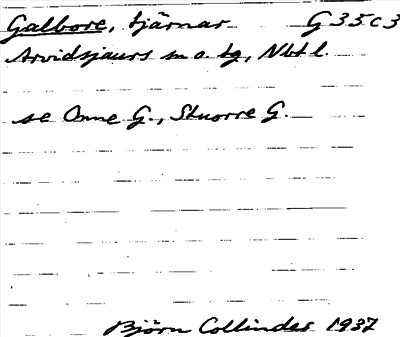 Galbore, tjärnar G 35 c 3
Arvidsjaurs sn o. tg, Nbtl.
se Onne G., Stuorre G.
Björn Collinder 1937